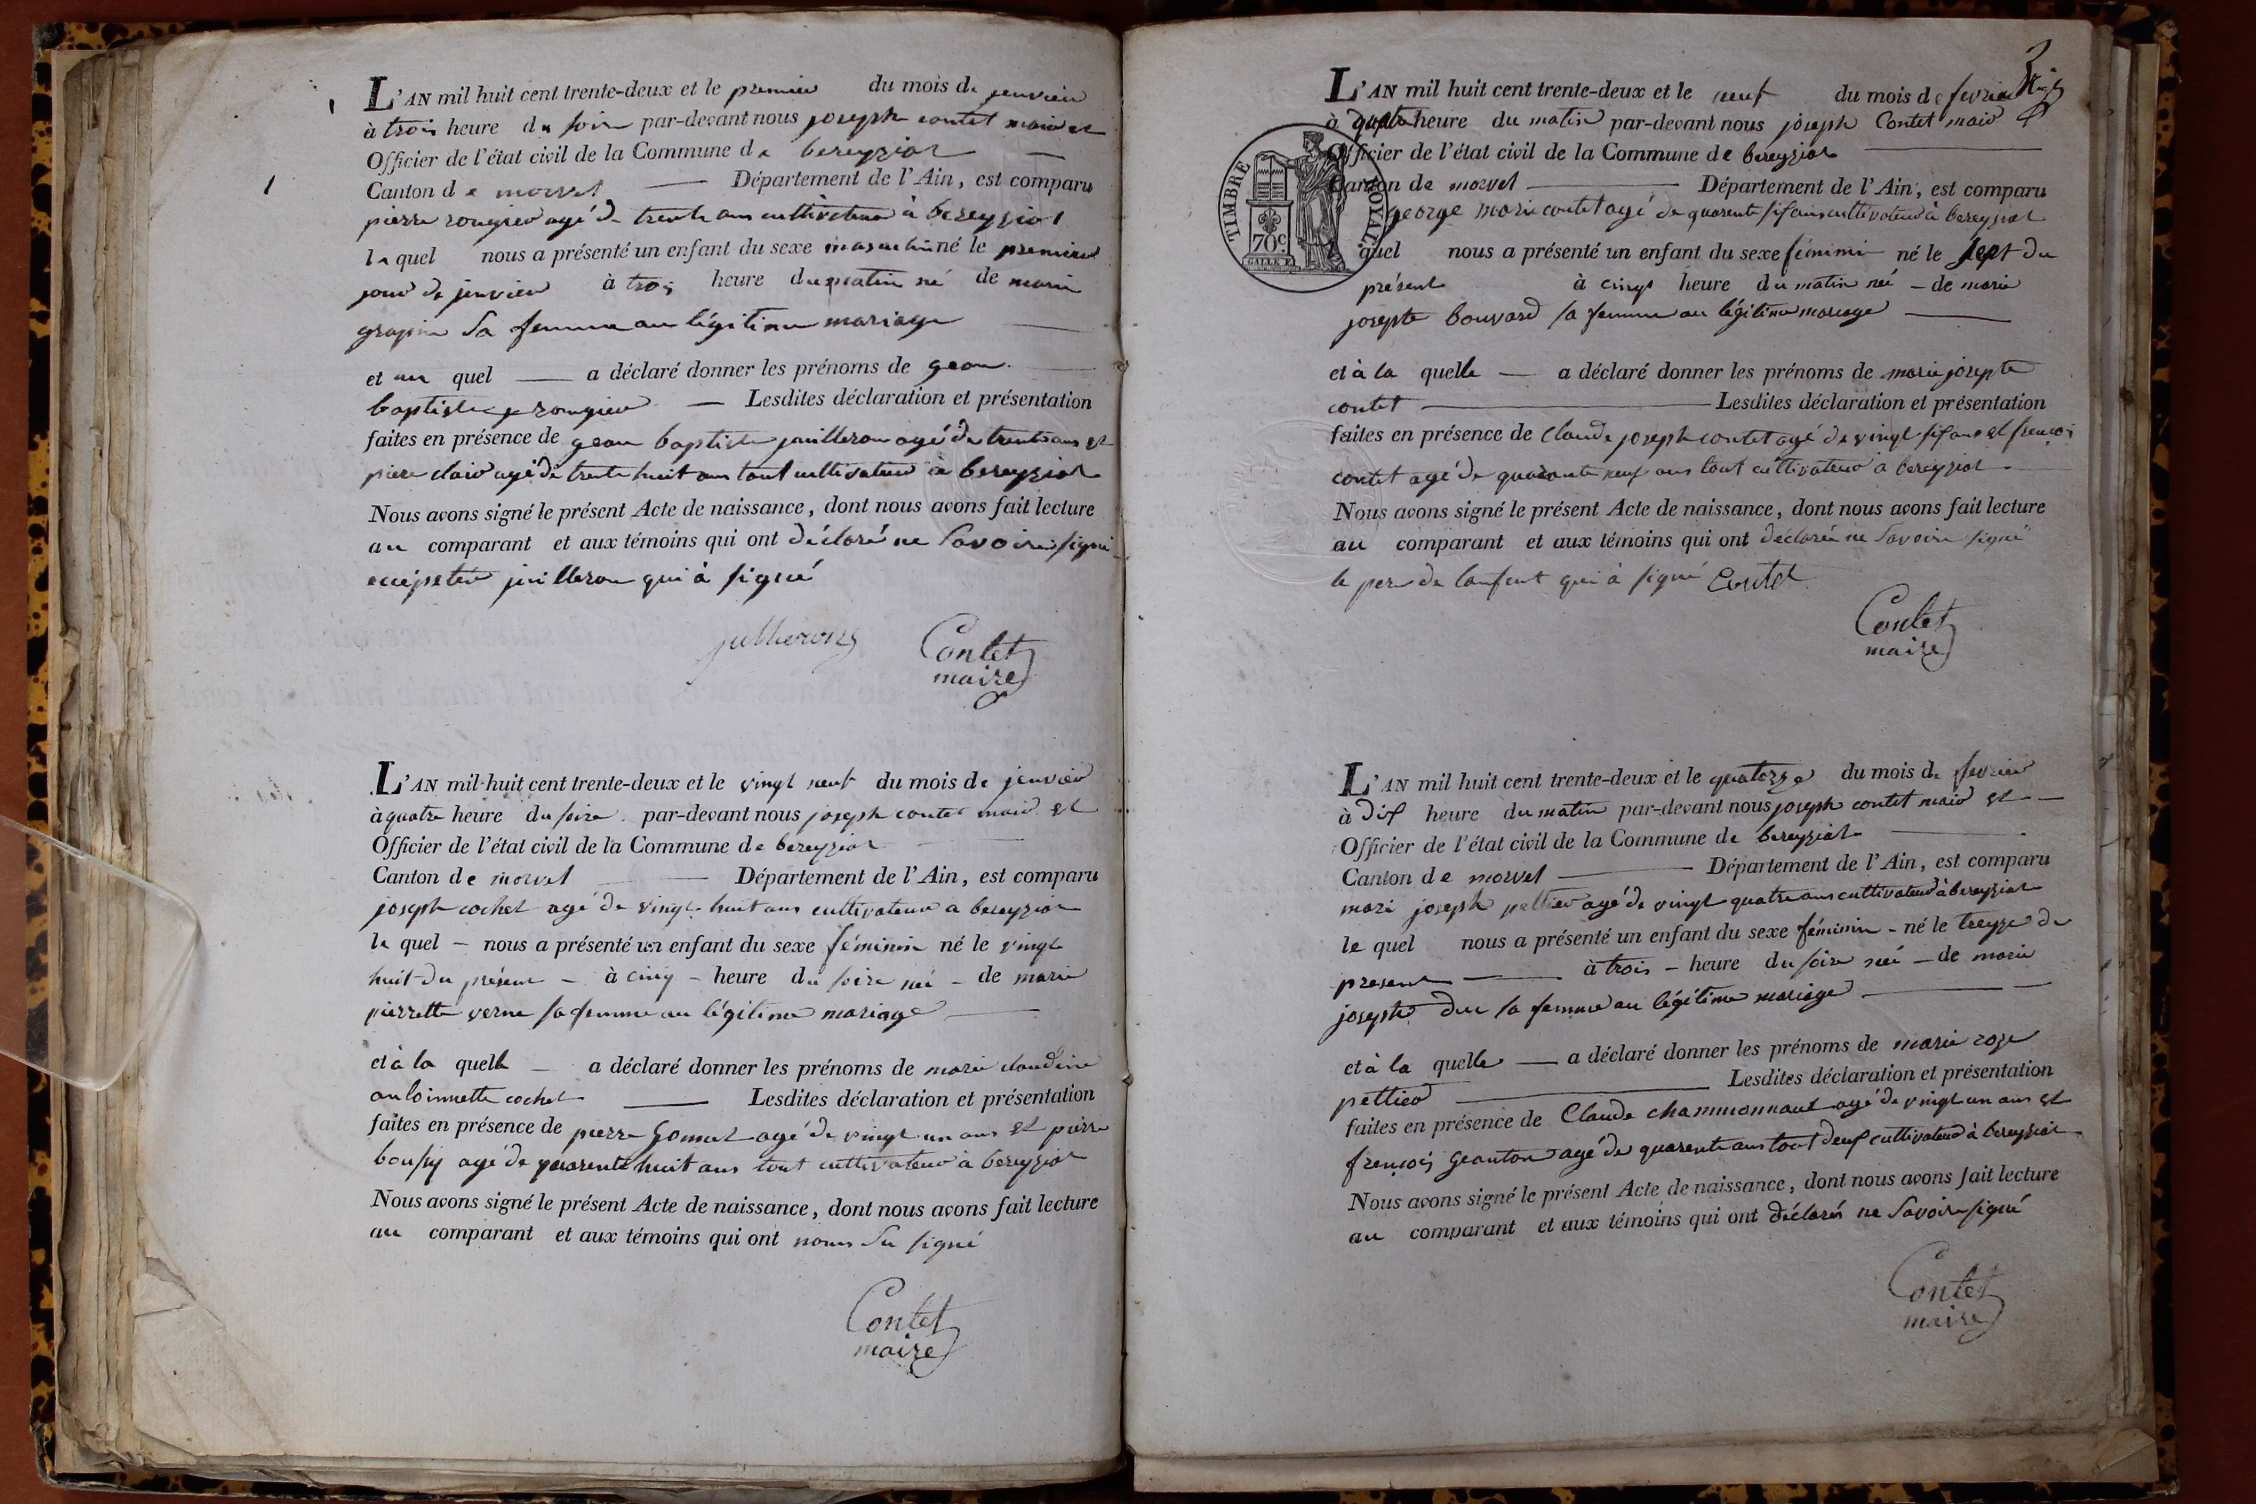 1
L'AN mil huit cent trente-deux et le premier du mois de jenvier
à trois heure du soire par-devant nous joseph contet maire et
Officier de l'état civil de la Commune de bereyziat
1
Canton de morvel Département de l'Ain, est comparu
pierre rougier agé de trente ans cultivateur à bereyziat
le quel nous a présenté un enfant du sexe masculin né le premier
jour de jenvier à trois heure du matin né de marie
grapin sa femme au légitime mariage
et au quel a déclaré donner les prénoms de gean
baptiste rougier Lesdites déclaration et présentation
faites en présence de gean baptiste juilleron agé de trente ans et
piere clair agé de trente huit ans tout cultivateur à bereyziat
Nous avons signé le présent Acte de naissance, dont nous avons fait lecture
au comparant et aux témoins qui ont déclaré ne savoire signé
juilleron qui à signé
juilleron
Contet
maire
L'AN mil huit cent trente-deux et le vingt neuf du mois de jenvier
à quatre heure du soire par-devant nous joseph contet maire et
Officier de l'état civil de la Commune de bereyziat
Canton de morvel Département de l'Ain, est comparu
joseph cochet agé de vingt huit ans cultivateur a bereyziat
le quel nous a présenté un enfant du sexe féminin né le vingt
huit du présent à cinq heure du soire né de marie
pierrette verne sa femme au légitime mariage
et à la quelle a déclaré donner les prénoms de marie claudine
cochet Lesdites déclaration et présentation
faites en présence de pierre gomet agé de vingt un ans et pierre
agé de quarente huit ans tout cultivateur à bereyziat
Nous avons signé le présent Acte de naissance, dont nous avons fait lecture
au comparant et aux témoins qui ont nom su signé
Contet
maire
3
L'AN mil huit cent trente-deux et le neuf du mois de fevrier
à quatre heure du matin par-devant nous joseph Contet maire
Officier de l'état civil de la Commune de bereyziat
TIMBRE ROYAL
70c.
GALLE F.
Canton de morvel Département de l'Ain, est comparu
george marie contet agé de quarente six ans cultivateur à bereyziat
le quel nous a présenté un enfant du sexe féminin né le sept du
présent à cinq heure du matin né de marie
josepte bouvard sa femme au légitime mariage
et à la quelle a déclaré donner les prénoms de marie josepte
contet Lesdites déclaration et présentation
faites en présence de claude joseph contet agé de vingt six ans et françois
contet agé de quarante neuf ans tout cultivateur a bereyziat
Nous avons signé le présent Acte de naissance, dont nous avons fait lecture
au comparant et aux témoins qui ont declaré ne savoire signé
le pere de lanfent qui à signé Contet
Contet
maire
L'AN mil huit cent trente-deux et le quatorze du mois de fevrier
à dix heure du matin par-devant nous joseph contet maire et
Officier de l'état civil de la Commune de bereyziat
Canton de morvel Département de l'Ain, est comparu
mari joseph peltier agé de vingt quatre ans cultivateur à bereyziat
le quel nous a présenté un enfant du sexe féminin né le treyze du
present à trois heure du soire né de marie
josepte duc sa femme au légitime mariage
et à la quelle a déclaré donner les prénoms de marie roze
peltier Lesdites déclaration et présentation
faites en présence de Claude chammonnaut agé de vingt un ans et
françois geanton agé de quarente ans tout deux cultivateur à bereyziat
Nous avons signé le présent Acte de naissance, dont nous avons fait lecture
au comparant et aux témoins qui ont déclarés ne savoire signé
Contet
maire